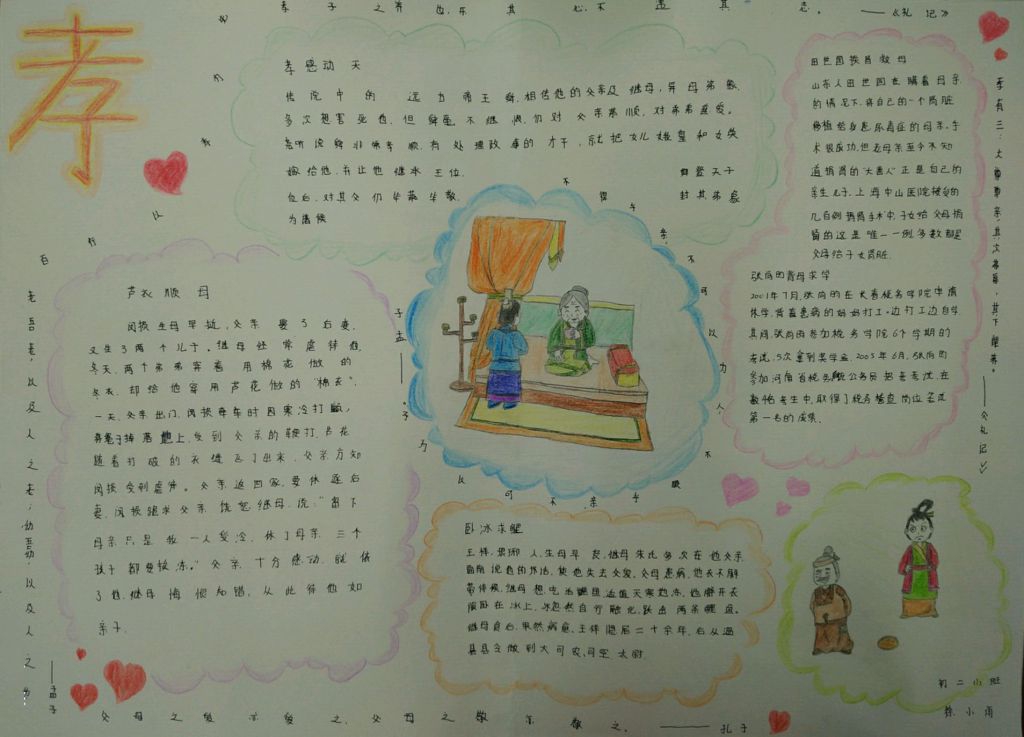 孝
孝子之养也,乐其心,不违其志。——《礼记》
孝感动天
传说中的 远古帝王舜,相传他的父亲及继母,异母弟象,
多次想害死他,但舜毫不继恨,仍对父亲恭顺,对弟弟慈爱。
尧听说舜非常孝顺,有处理政事的才干,就把女儿娥皇和女英
嫁给他,并让他继承王位。 舜登天子
位后,对其父仍毕恭毕敬, 封其弟象
为诸侯
田世国捐肾救母
山东人田世国在瞒着母亲
的情况下,将自己的一个肾脏
移植给身患尿毒症的母亲。手
术很成功,但老母亲至今不知
道捐肾的"大善人"正是自己的
亲生儿子,上海中山医院接受的
几百例捐肾手术中,子女给父母捐
肾的这是唯一一例,多数都是
父母给子女肾脏.
张尚昀背母求学
2001年7月,张尚昀在长春税务学院申请
休学,背着患病的妈妈打工,边打工边自学
其间,张尚昀参加税务学院6个学期的
考试,5次拿到奖学金。2005年6月,张尚昀
参加河南省税务系统公务员招考考试,在
数千名考生中,取得了税务稽查岗位笔试
第一名的成绩。
孝有三:大尊尊亲,其次弗辱,其下能养。——《礼记》
芦衣顺母
闵损生母早逝,父亲娶了后妻,
又生了两个儿子。继母经常虐待他,
冬天,两个弟弟穿着用棉花做的
冬衣,却给他穿用芦花做的"棉衣"。
一天,父亲出门,闵损牵车时因寒冷打颤,
将绳子掉落地上,受到父亲的鞭打,芦花
随着打破的衣缝飞了出来,父亲方知
闵损受到虐待。父亲返回家,要休逐后
妻,闵损跪求父亲饶恕继母,说:"留下
母亲只是我一人受冷,休了母亲三个
孩子都要挨冻。"父亲十分感动,就依
了他,继母悔恨知错,从此待他如
亲子.
老吾老,以及人之老;幼吾幼,以及人之幼——孟子
不得乎亲,不可以为人,不顺乎亲,不可以为子——孟子
卧冰求鲤
王祥,琅琊人,生母早丧,继母朱氏多次在他父亲
面前说他的坏话,使他失去父爱。父母患病,他衣不解
带侍候,继母想吃活鲤鱼,适值天寒地冻,他解开衣
服卧在冰上,冰忽然自行融化,跃出两条鲤鱼。
继母食后,果然病愈。王祥隐居二十余年,后从温
县县令做到大司农,司空,太尉.
父母之爱亦爱之,父母之敬亦敬之。——孔子
初二(1)班
徐小雨